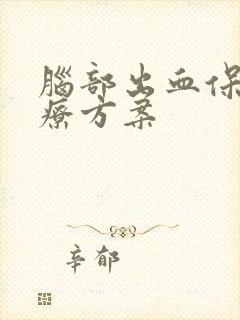 腦部出血保
療方案
辛郁